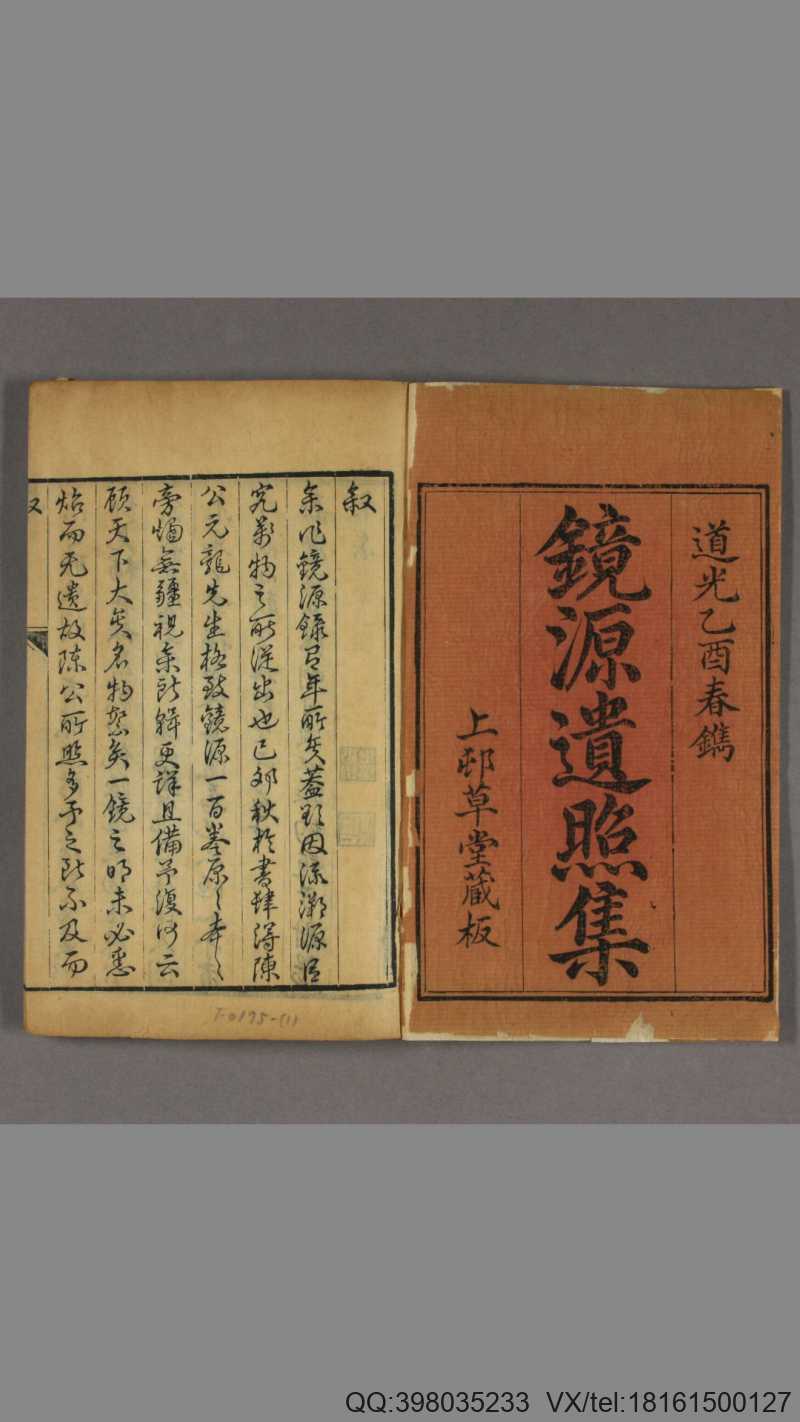 道光乙酉春鐫
鏡源遺照集
上邨草堂蔵板
叙
余作鏡源錄有年所矣蓋欲因流溯源以
究萬物之所從出也己卯秋於書肆得陳
公元龍先生格致鏡源一百卷原〻本〻
旁燭無疆視余所輯更詳且備予復何云
顧天下大矣名物繁矣一鏡之明未必悉
炤而无遺故陳公所照多予之所不及而
叙
T-0195-(1)
QQ:398035233 VX/tel:18161500127